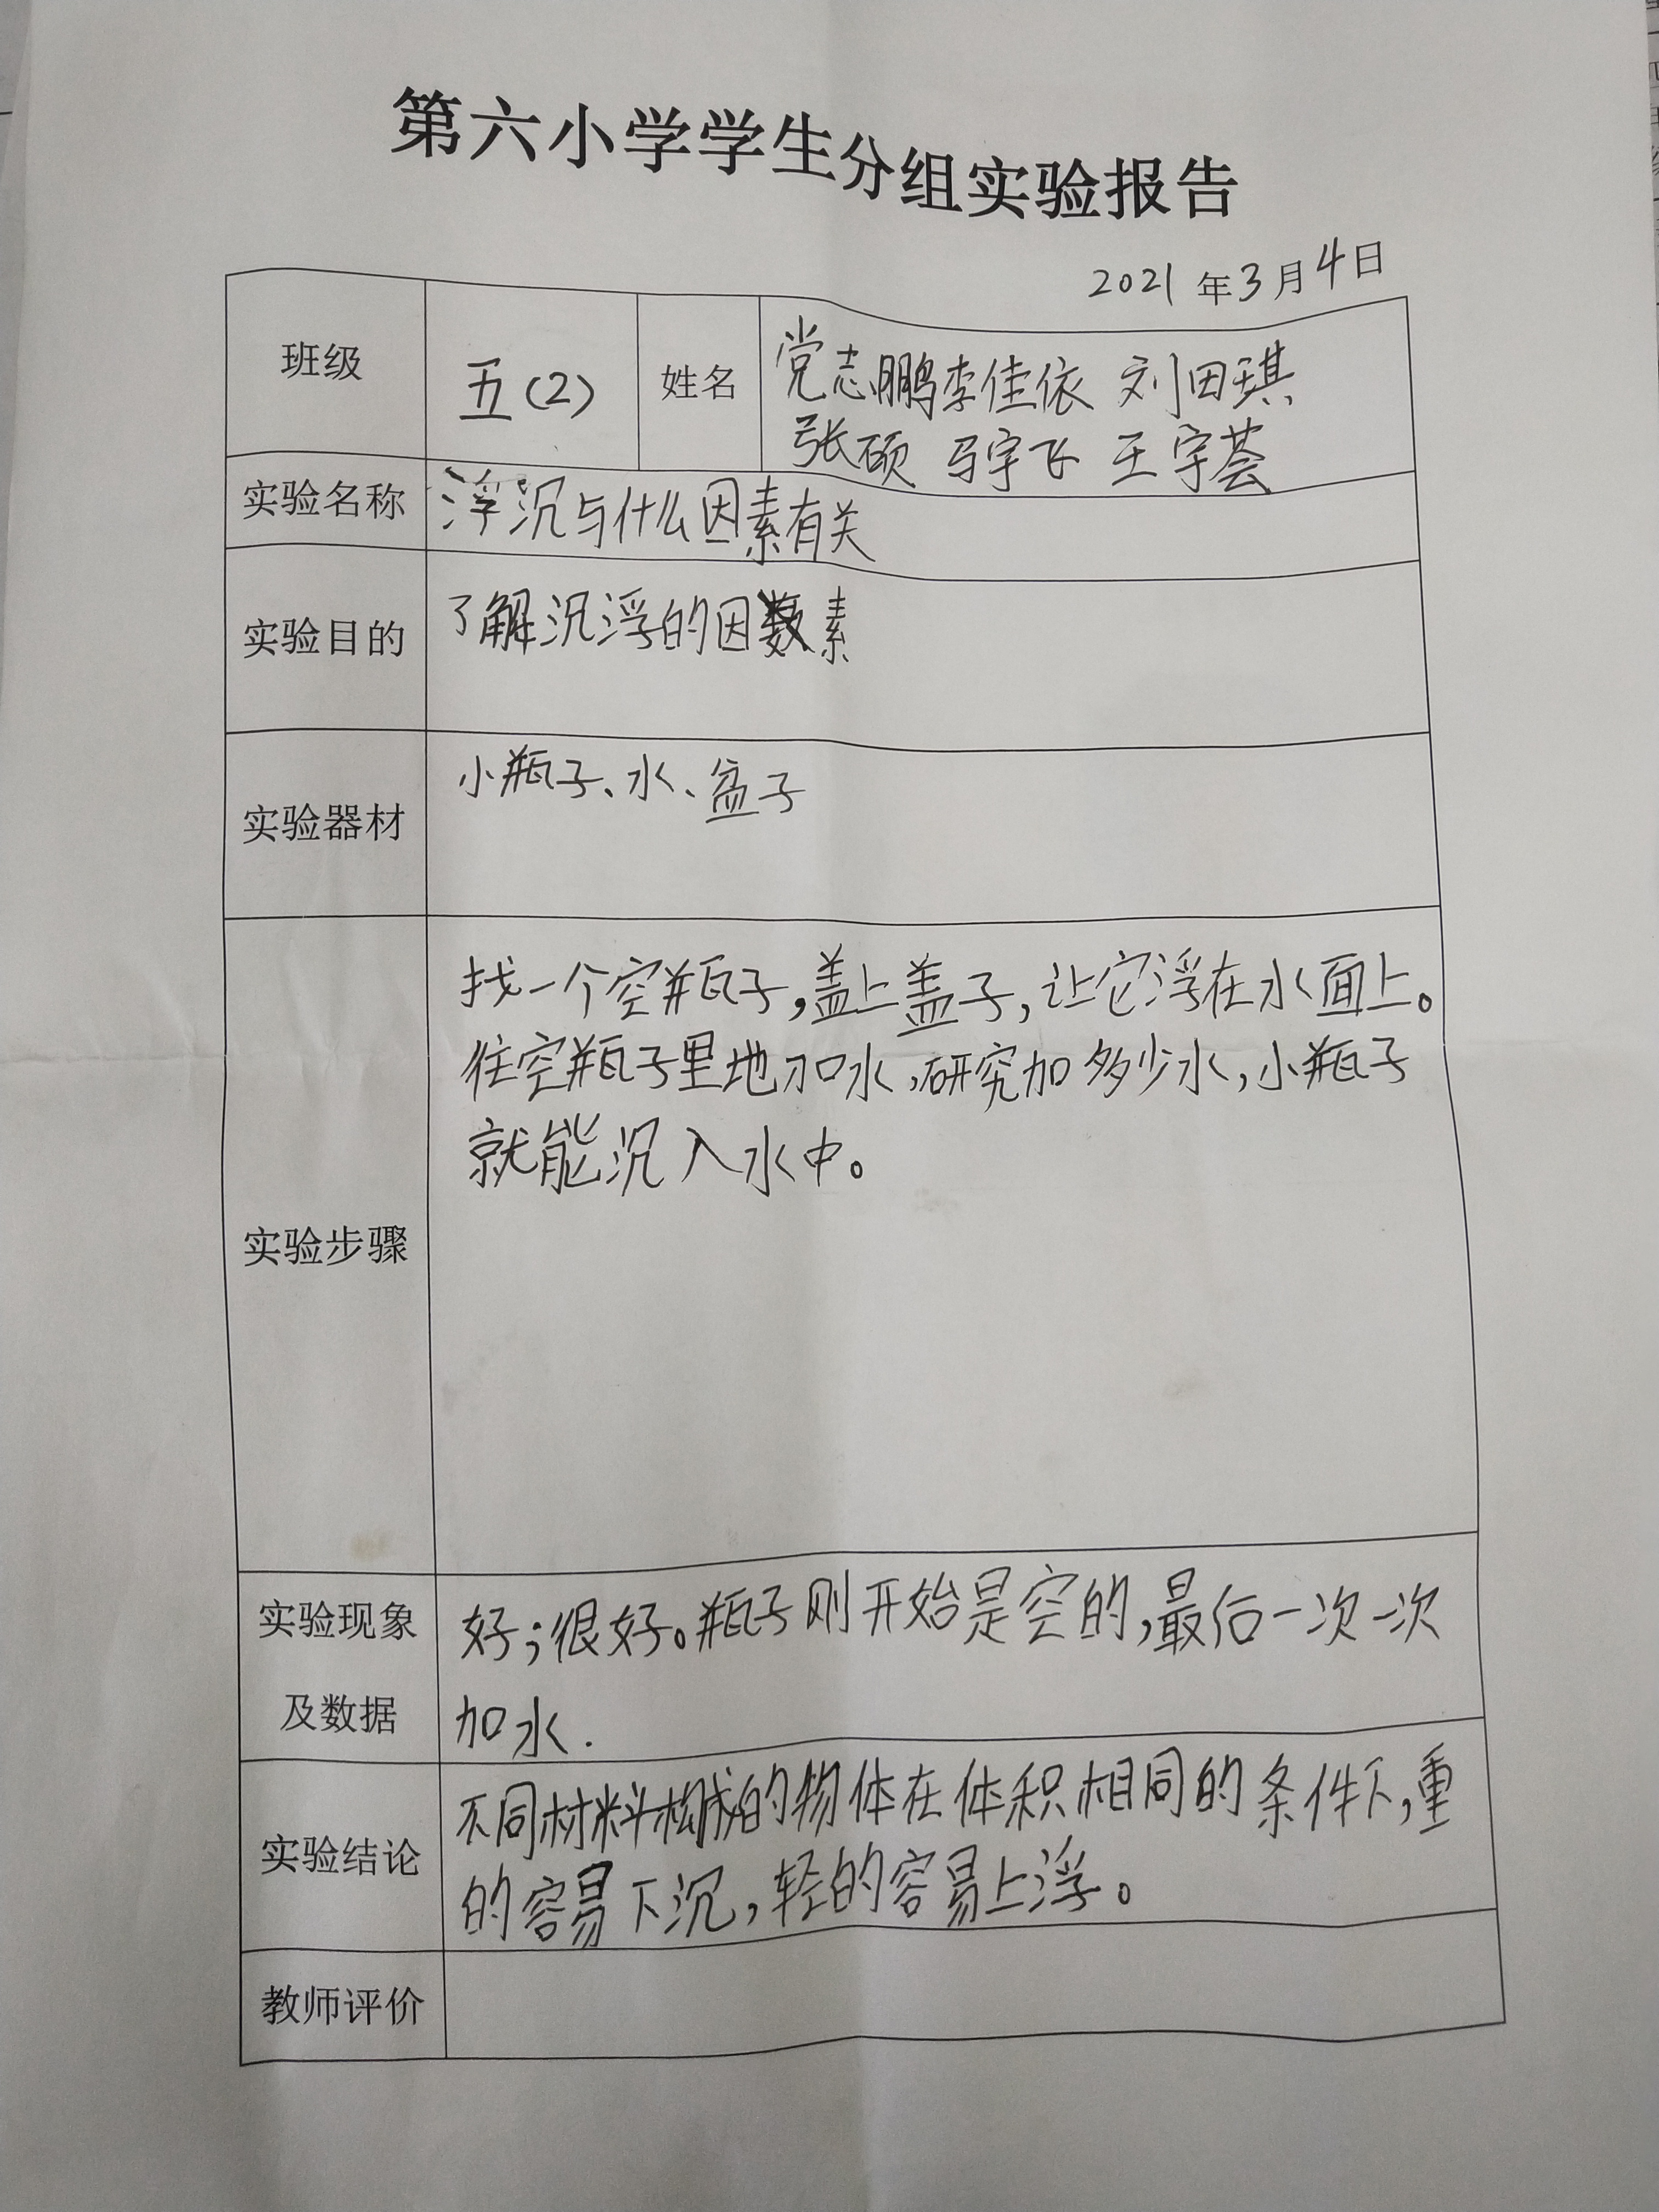 第六小学学生分组实验报告
2021年3月4日
班级 五(2) 姓名 党志鹏李佳依 刘田琪
张硕 马宇飞 王宇荟
实验名称 浮沉与什么因素有关
实验目的 了解沉浮的因素
实验器材 小瓶子、水、盆子
找一个空瓶子,盖上盖子,让它浮在水面上。
往空瓶子里地加水,研究加多少水,小瓶子
就能沉入水中。
实验步骤
实验现象 好;很好。瓶子刚开始是空的,最后一次一次
及数据 加水.
不同材料构成的物体在体积相同的条件下,重
实验结论
的容易下沉,轻的容易上浮。
教师评价